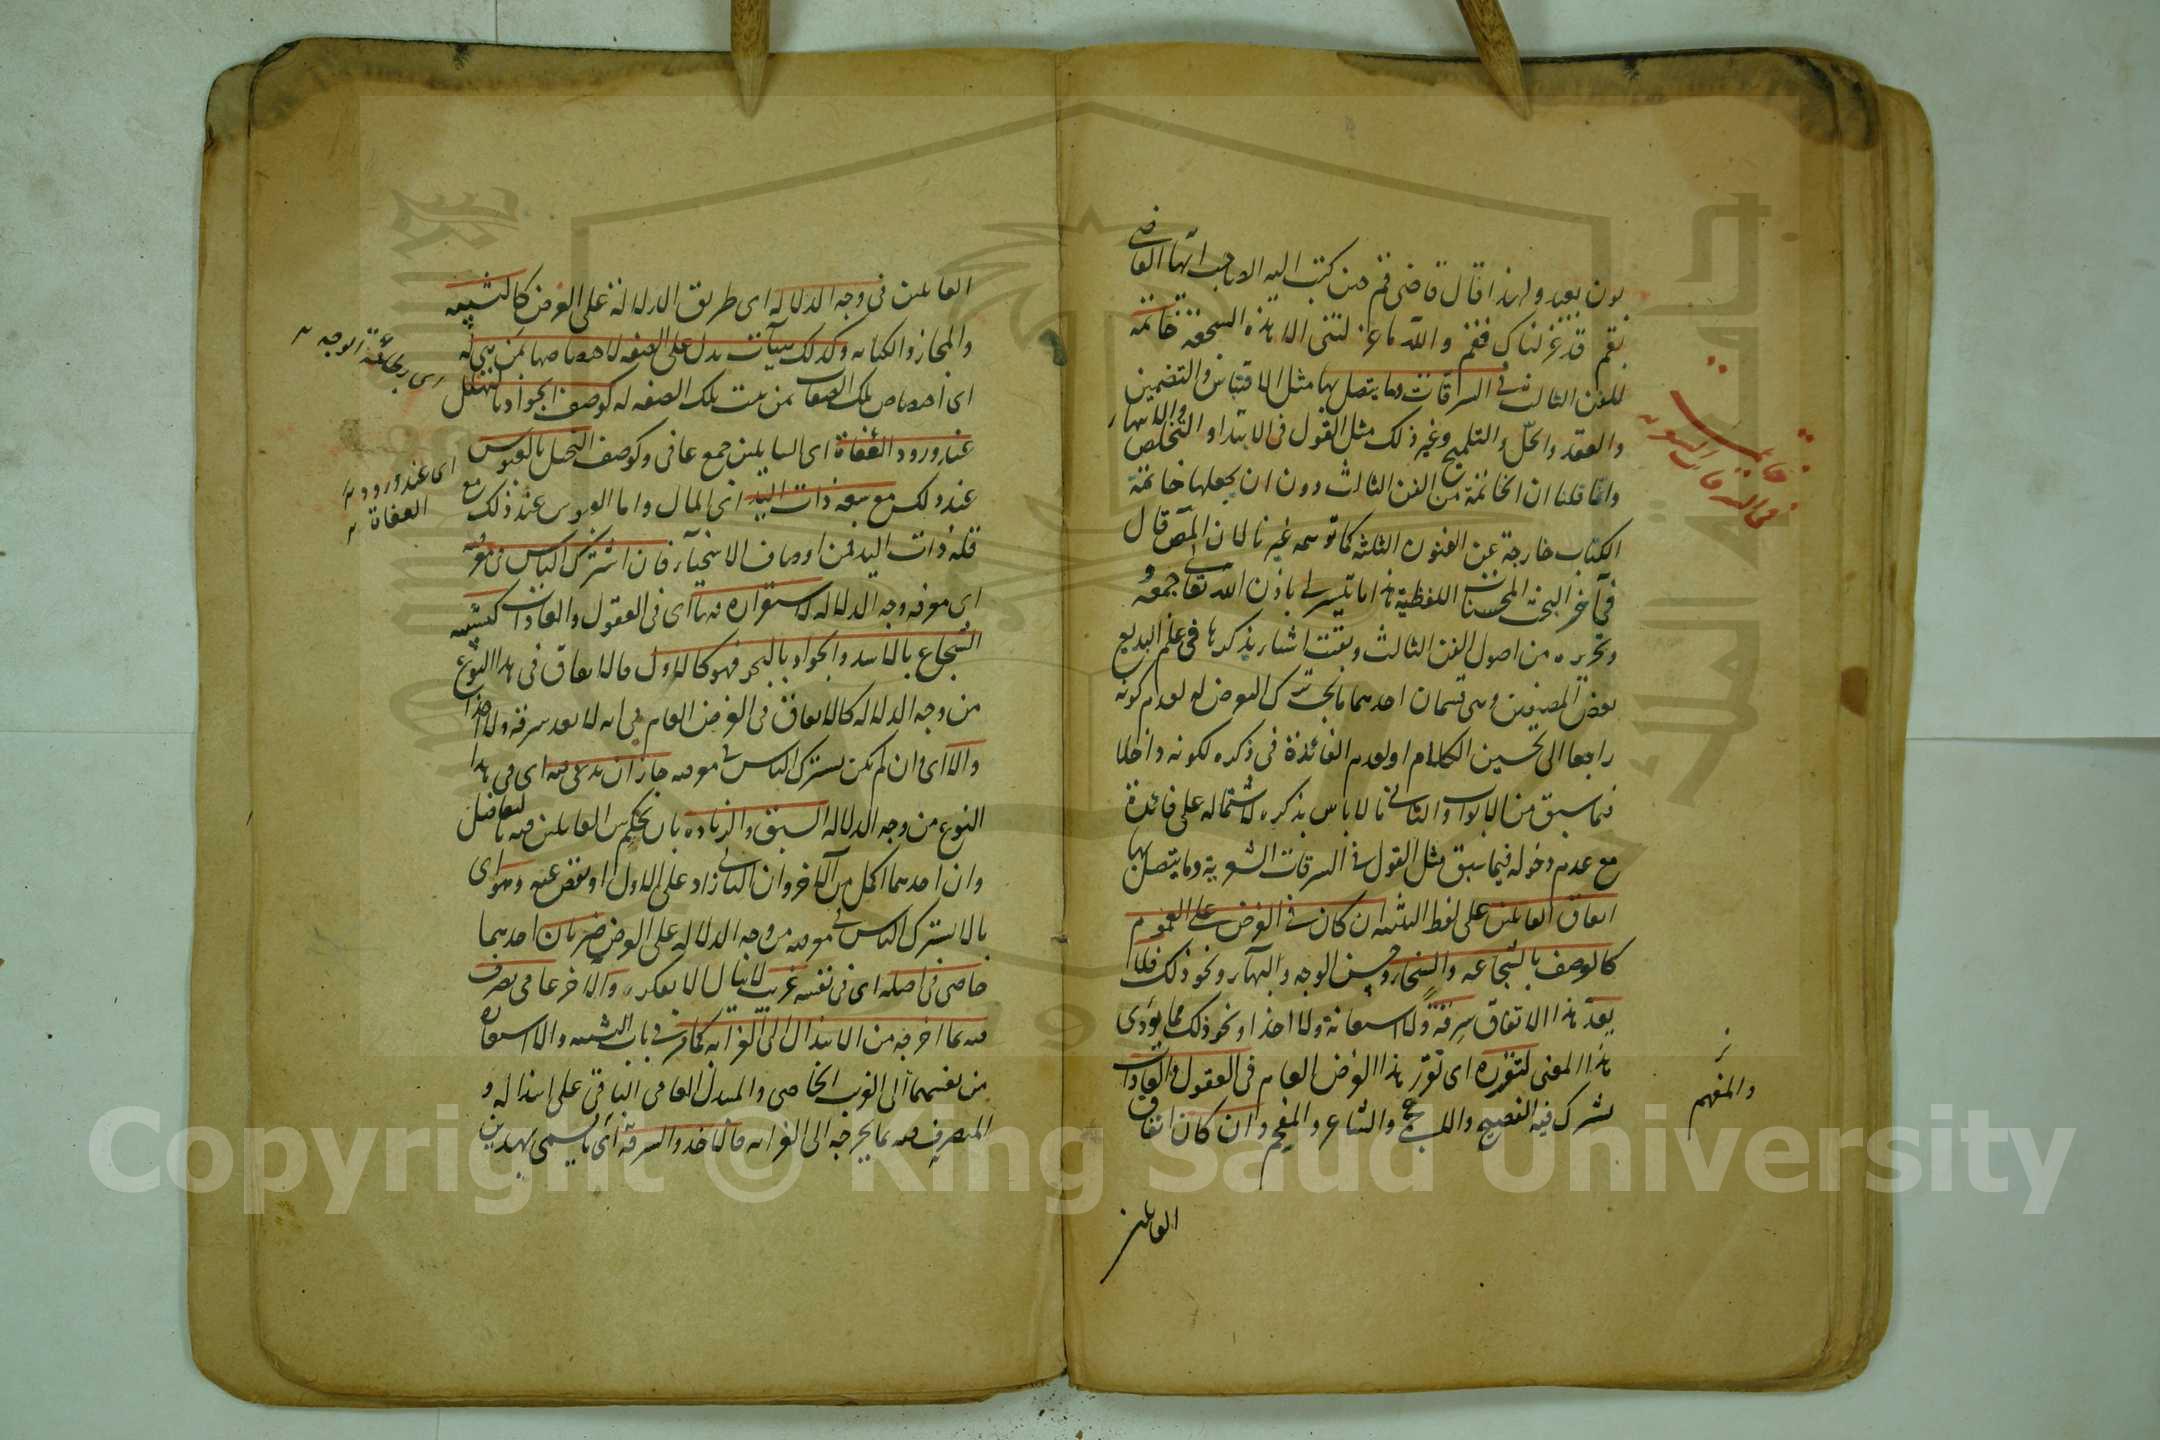 بون بعيد ولهذا قال قاضى قم حين كتب اليه الصاحب ايها القاضى
بقم قد عزلناك فقم والله ما عزلتنى الا هذه السجعة خاتمة
للفن الثالث فى السرقات وما يتصل بها مثل الاقتباس والتضمين
والعقد والحل والتلميح وغير ذلك مثل القول فى الابتداء والتخلص والانتهاء
وانما قلنا ان الخاتمة من الفن الثالث دون ان يجعلها خاتمة
الكتاب خارجة عن الفنون الثلثة كما توهمه غيرنا لان المص قال
فى آخر البحث المحسنات اللفظية هذا ما تيسر لى باذن الله تعالى جمعه و
وتحريره من اصول الفن الثالث وبقيت اشياء يذكرها فى علم البديع
بعض المصنفين وهى قسمان احدهما ما يجب ترك التعرض له لعدم كونه
راجعا الى تحسين الكلام او لعدم الفائدة فى ذكره لكونه داخلا
فيما سبق من الابواب والثانى ما لا باس بذكره لاشتماله على فائدة
مع عدم دخوله فيما سبق مثل القول فى السرقات الشعرية وما يتصل بها
اتفاق القائلين على لفظ التثنيه ان كان فى الغرض على العموم
كالوصف بالشجاعه والسخاء وحسن الوجه والبهاء ونحو ذلك فلا
يعد هذا الاتفاق سرقة ولا استعانة ولا اخذا ونحو ذلك مما يؤدى
هذا المعنى لتقرره اى تقرر هذا الغرض العام فى العقول والعادات
يشترك فيه الفصيح والاعجم والشاعر والمفحم وان كان اتفاق
القائلين
خاتمة
فى السرقات الشعرية
والمفحم
القائلين فى وجه الدلاله اى طريق الدلالة على الغرض كالتشبيه
والمجاز والكنايه وكذكر هيآت تدل على الصفه لاختصاصها بمن هى له
اى اختصاص تلك الهيات بمن ثبتت تلك الصفه له كوصف الجواد بالتهلل
عند ورود العفاة اى السايلين جمع عافى وكوصف البخيل بالعبوس
عند ذلك مع سعه ذات اليد اى المال واما العبوس عند ذلك مع
قلة ذات اليد فمن اوصاف الاسخياء فان اشترك الناس فى معرفته
اى معرفه وجه الدلاله لاستقراره فيهما اى فى العقول والعادات كتشبيه
الشجاع بالاسد والجواد بالبحر فهو كالاول فالاتفاق فى هذا النوع
من وجه الدلاله كالاتفاق فى الغرض العام فى انه لا يعد سرقة ولا اخذا
والا اى وان لم يكن يشترك الناس فى معرفته جاز ان يدعى فيه اى فى هذا
النوع من وجه الدلاله السبق والزياده بان يحكم بين القائلين فيه بالتفاضل
وان احدهما اكمل من الآخر وان الثانى زاد على الاول او نقص عنه وهو اى
ما لا يشترك الناس فى معرفته من وجه الدلاله على الغرض ضربان احدهما
خاصى فى اصله اى فى نفسه غريب لا ينال الا بفكر والآخر عامى تصرف
فيه بما اخرجه من الابتذال الى الغرابه كما مر فى باب التشبيه والاستعاره
من تقسيمهما الى الغريب الخاصى والمبتذل العامى الباقى على ابتذاله و
المتصرف فيه بما يخرجه الى الغرابه فالاخذ والسرقة اى ما يسمى بهذين
اى عند ورود
العفاة